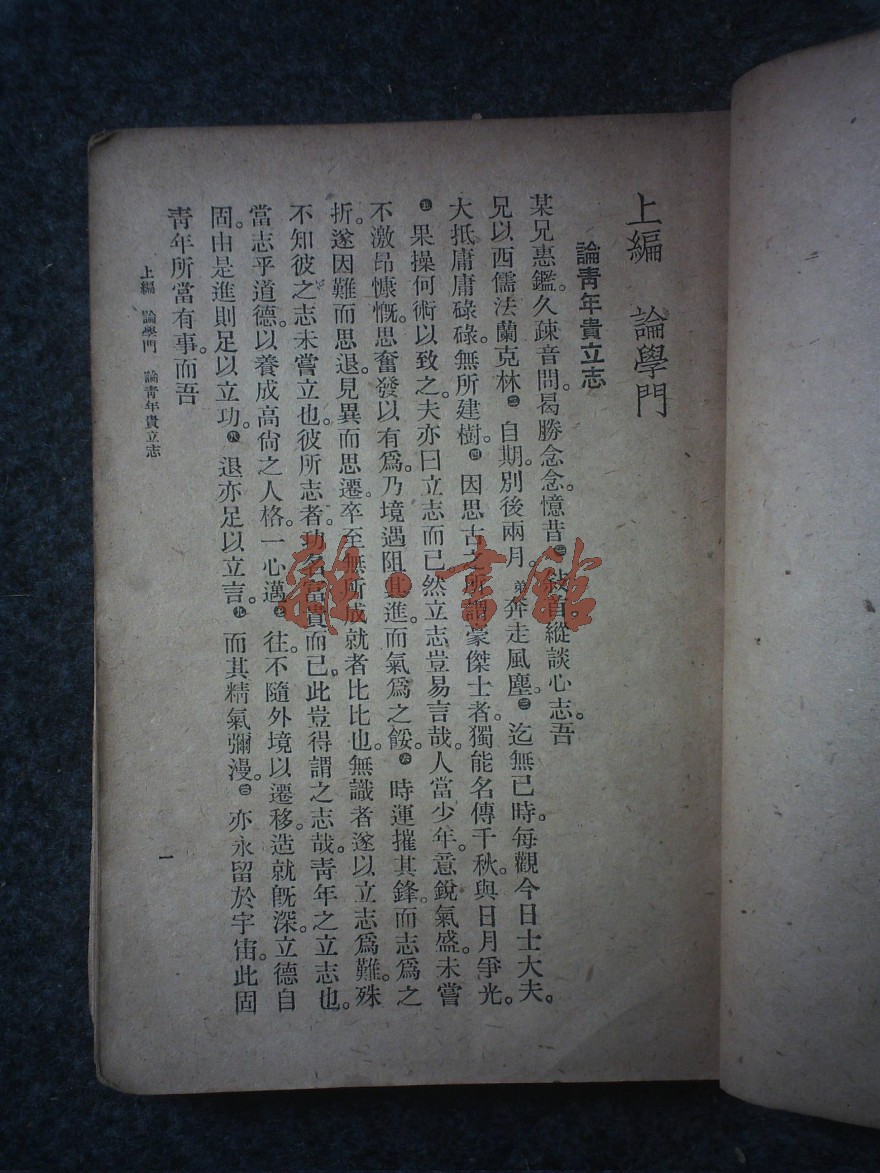 上編　論學門
論青年貴立志
某兄惠鑑。久疎音問。曷勝念念。憶昔㊀敍首。縱談心志。吾
兄以西儒法蘭克林㊁自期。別後兩月。弟奔走風塵。㊂迄無已時。每觀今日士大夫。
大抵庸庸碌碌。無所建樹。㊃因思古之所謂豪傑士者。獨能名傳千秋。與日月爭光。
㊄果操何術以致之。夫亦曰立志而已。然立志豈易言哉。人當少年。意銳氣盛。未嘗
不激昂慷慨。思奮發以有爲。乃境遇阻其進。而氣爲之餒。㊅時運摧其鋒。而志爲之
折。遂因難而思退。見異而思遷。卒至無所成就者比比也。無識者遂以立志爲難。殊
不知彼之志未嘗立也。彼所志者。功名富貴而已。此豈得謂之志哉。靑年之立志也。
當志乎道德。以養成高尙之人格。一心邁㊆往。不隨外境以遷移。造就旣深。立德自
固。由是進則足以立功。㊇退亦足以立言。㊈而其精氣彌漫。㊉亦永留於宇宙。此固
靑年所當有事。而吾
上編　論學門　論靑年貴立志
一
雜·書館